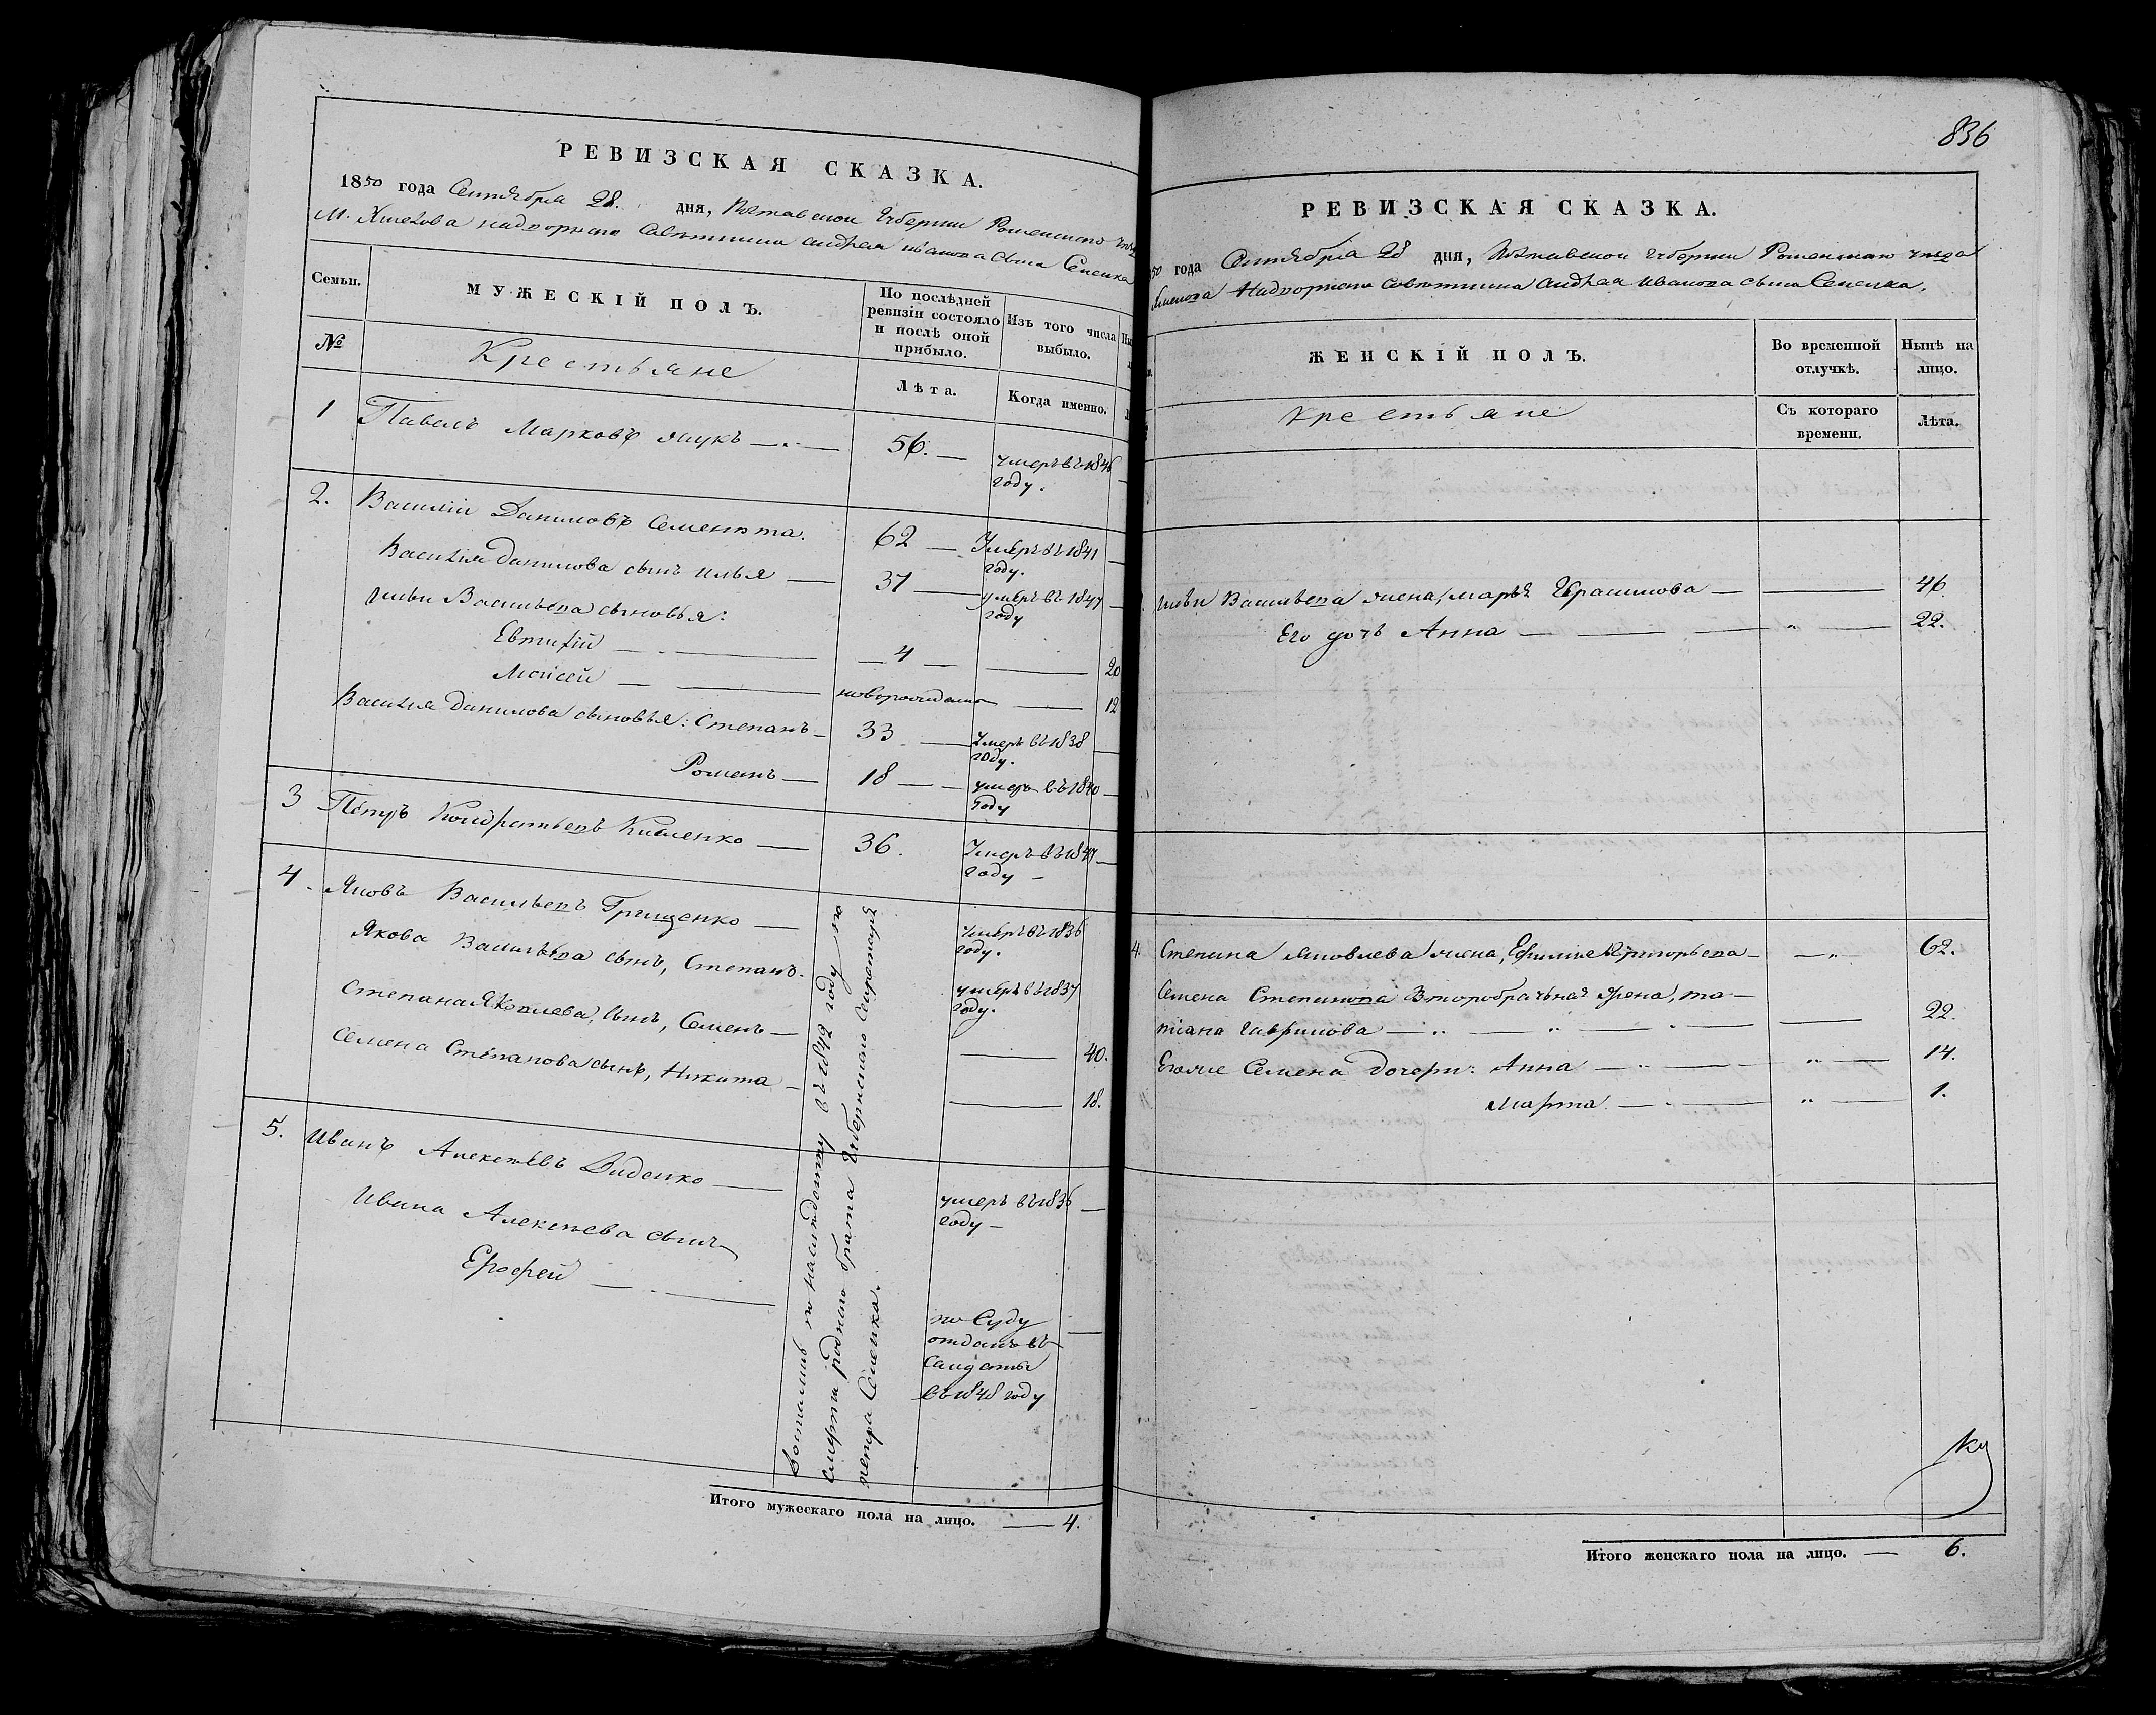 РЕВИЗСКАЯ СКАЗКА.
1850 года Сентября 28. дня, Полтавской Губернии Роменского
М. Хмелова надворного Советника Андрея Иванова сына Сененка
Семьи.
МУЖЕСКІЙ ПОЛЪ.
По послѣдней ревизіи состояло и послѣ оной прибыло.
Изъ того числа выбыло.
№
Крестьяне
Лѣта.
Когда именно.
1 Павелъ Марковъ Жукъ — 56. — умеръ въ 1846 году.
2. Василій Даниловъ Сементта. 62 — Умеръ въ 1841 году.
Василія Данилова сынъ Илья — 31 — умеръ въ 1847 году
Ильи Васильева сыновья:
Евтихій — 4 — 20
Моисей — новорожденъ — 12
Василія Данилова сыновья: Степанъ — 33 — Умеръ въ 1838 году.
Романъ — 18 — умеръ въ 1840 году
3 Петръ Кондратьевъ — 36. Умеръ въ 1847 году —
4. Яковъ Васильевъ Грищенко — умеръ въ 1836 году.
Якова Васильева сынъ, Степанъ. умеръ въ 1837 году.
Степана Яковлева, сынъ, Семенъ — 40.
Семена Степанова сынъ, Никита — 18.
5. Иванъ Алексѣевъ Диденко — умеръ въ 1836 году —
Ивана Алексѣева сынъ
Ерофей — по Суду отданъ въ Салдаты въ 1848 году
по наследству въ 1842 году по
смерти родного брата Губернского Секретаря
Петра Сененка.
Итого мужескаго пола на лицо. — 4.
836
РЕВИЗСКАЯ СКАЗКА.
50 года Сентября 28 дня, Полтавской Губернии Роменского уезда
Надворного Советника Андрея Иванова сына Сененка.
ЖЕНСКІЙ ПОЛЪ.
Во временной отлучкѣ.
Нынѣ на лицо.
Крестьяне
Съ котораго времени.
Лѣта.
Ильи Васильева жена, Марья Герасимова — 46.
Его дочь Анна — " — 22.
4. Степана Яковлева жена, Григорьева — " — 62.
Семена Степанова Второбрачная Жена, Та-
тіана Гаврилова — 22.
Егоже Семена дочери: Анна — " — 14.
Марта — " — 1.
Итого женскаго пола на лицо. — 6.